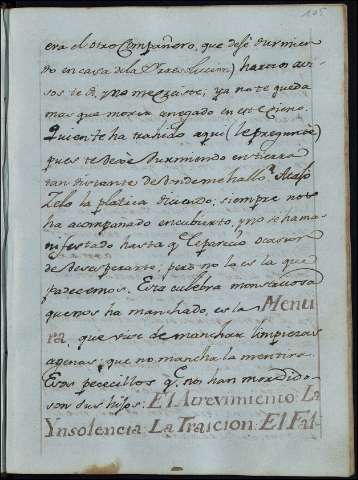 105
era el otro Compañero, que dejé durmien
do en casa de la
hartos avi
sos te di, y no me creiste; ya no te queda
mas que morir anegado en este Cieno.
Quien te ha trahido aqui (le pregunté)
pues te dejé durmiendo en tierra
tan distante de donde me hallo? Atajó
Zelo la platica diciendo; siempre nos
ha acompañado encubierto, y no se ha ma
nifestado hasta q.e le pareció ocasion
de desesperarte; pero no lo es la que
padecemos. Esta culebra monstruosa
que nos ha manchado, es la Menti
ra, que vive de manchar limpiezas
agenas; que no mancha la mentira.
Esos pececillos q.e nos han mordido
son sus hijos: El Atrevimiento: La
Ynsolencia: La Traicion: El Fal-